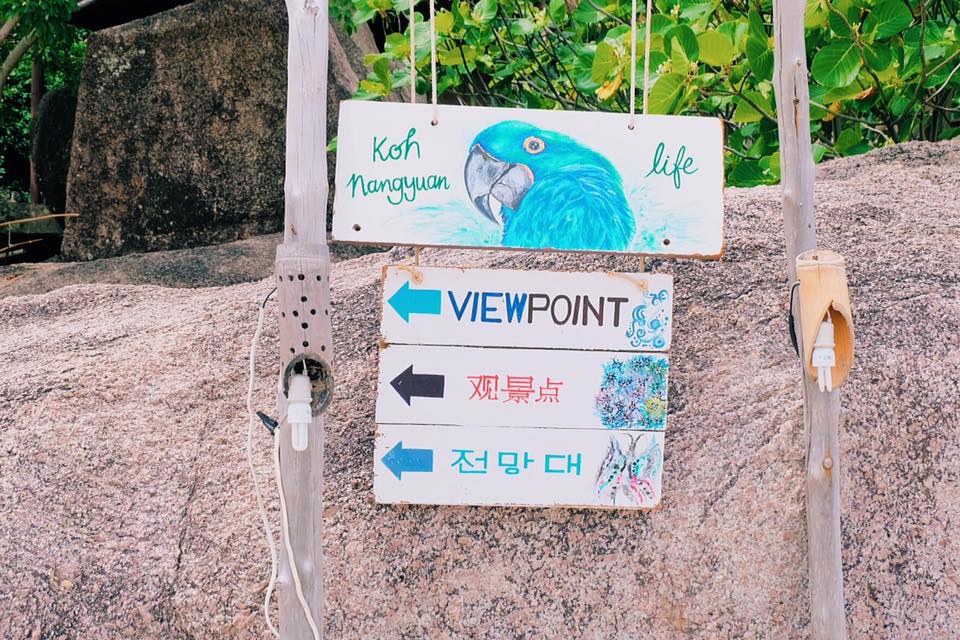 Koh Nangyuan life
VIEWPOINT
观景点
전망대